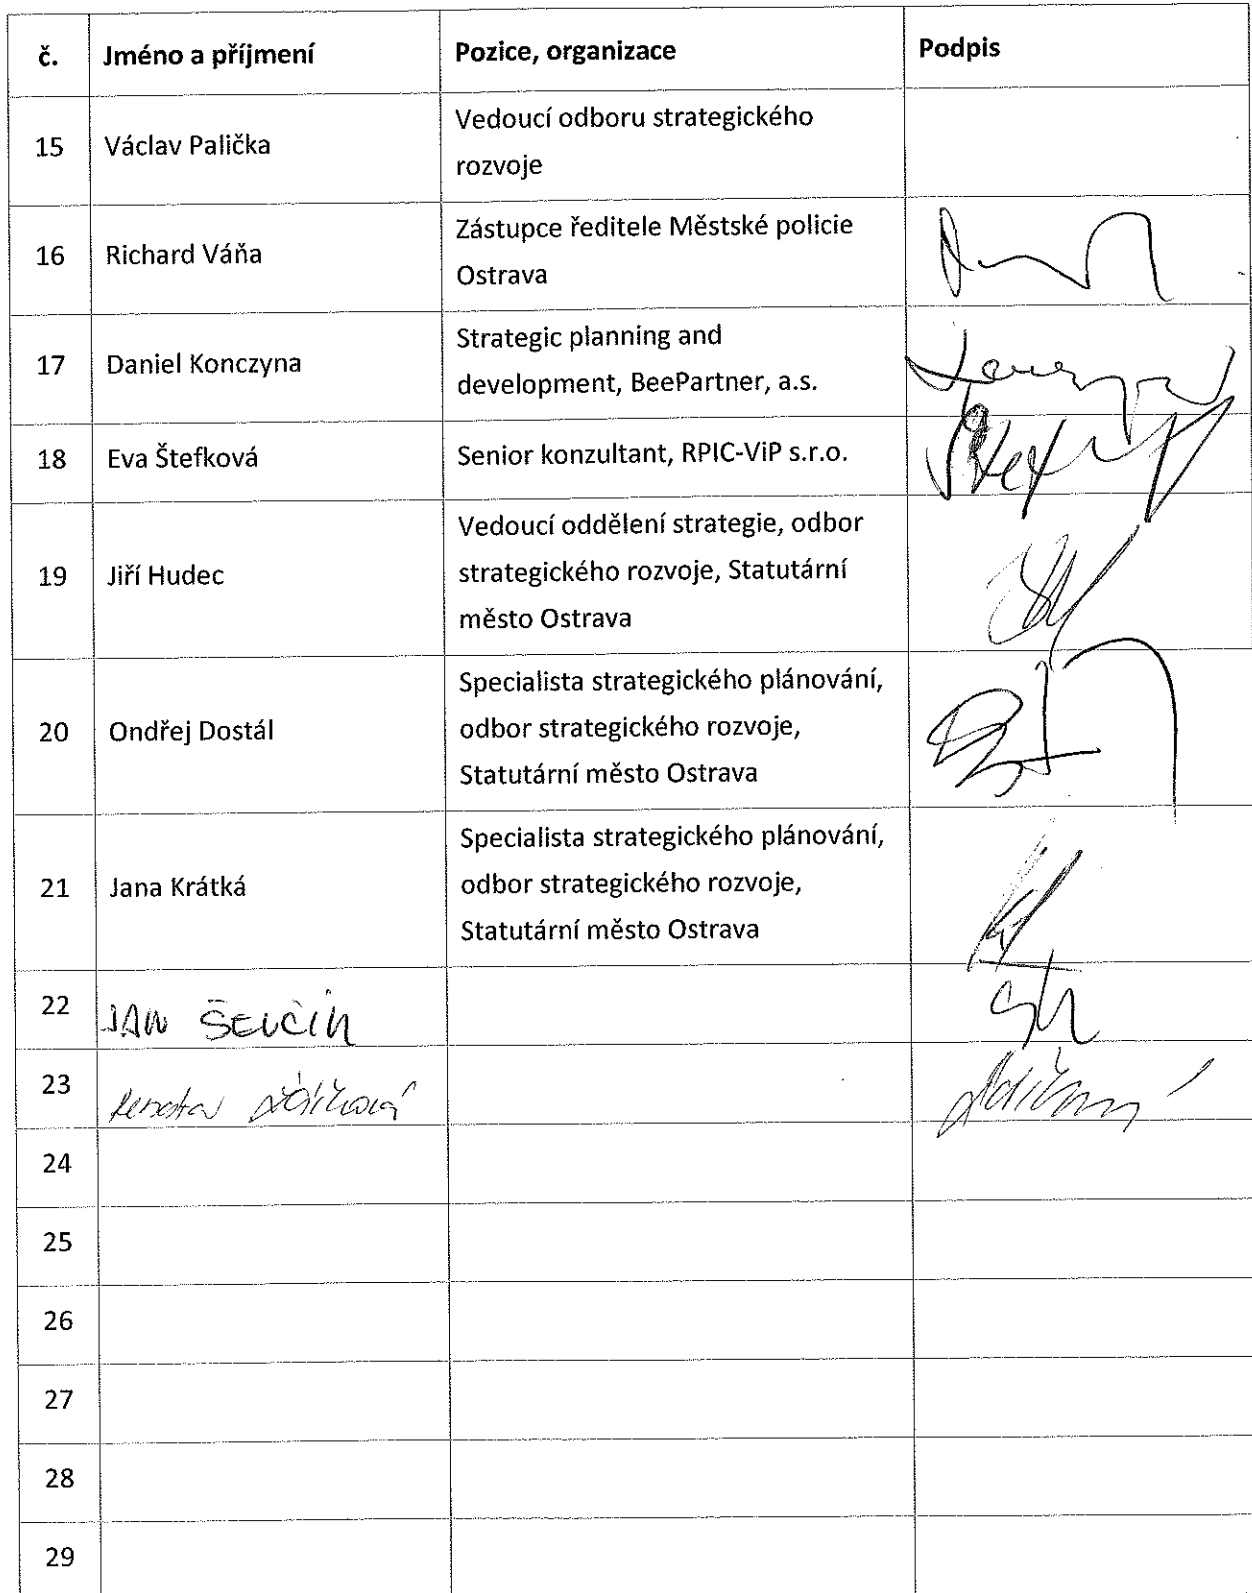 č. Jméno a příjmení Pozice, organizace Podpis
15 Václav Palička Vedoucí odboru strategického
rozvoje
16 Richard Váňa Zástupce ředitele Městské policie
Ostrava
17 Daniel Konczyna Strategic planning and
development, BeePartner, a.s.
18 Eva Štefková Senior konzultant, RPIC-ViP s.r.o.
19 Jiří Hudec Vedoucí oddělení strategie, odbor
strategického rozvoje, Statutární
město Ostrava
20 Ondřej Dostál Specialista strategického plánování,
odbor strategického rozvoje,
Statutární město Ostrava
21 Jana Krátká Specialista strategického plánování,
odbor strategického rozvoje,
Statutární město Ostrava
22 JAN ŠEVČÍK
23 Renata
24
25
26
27
28
29